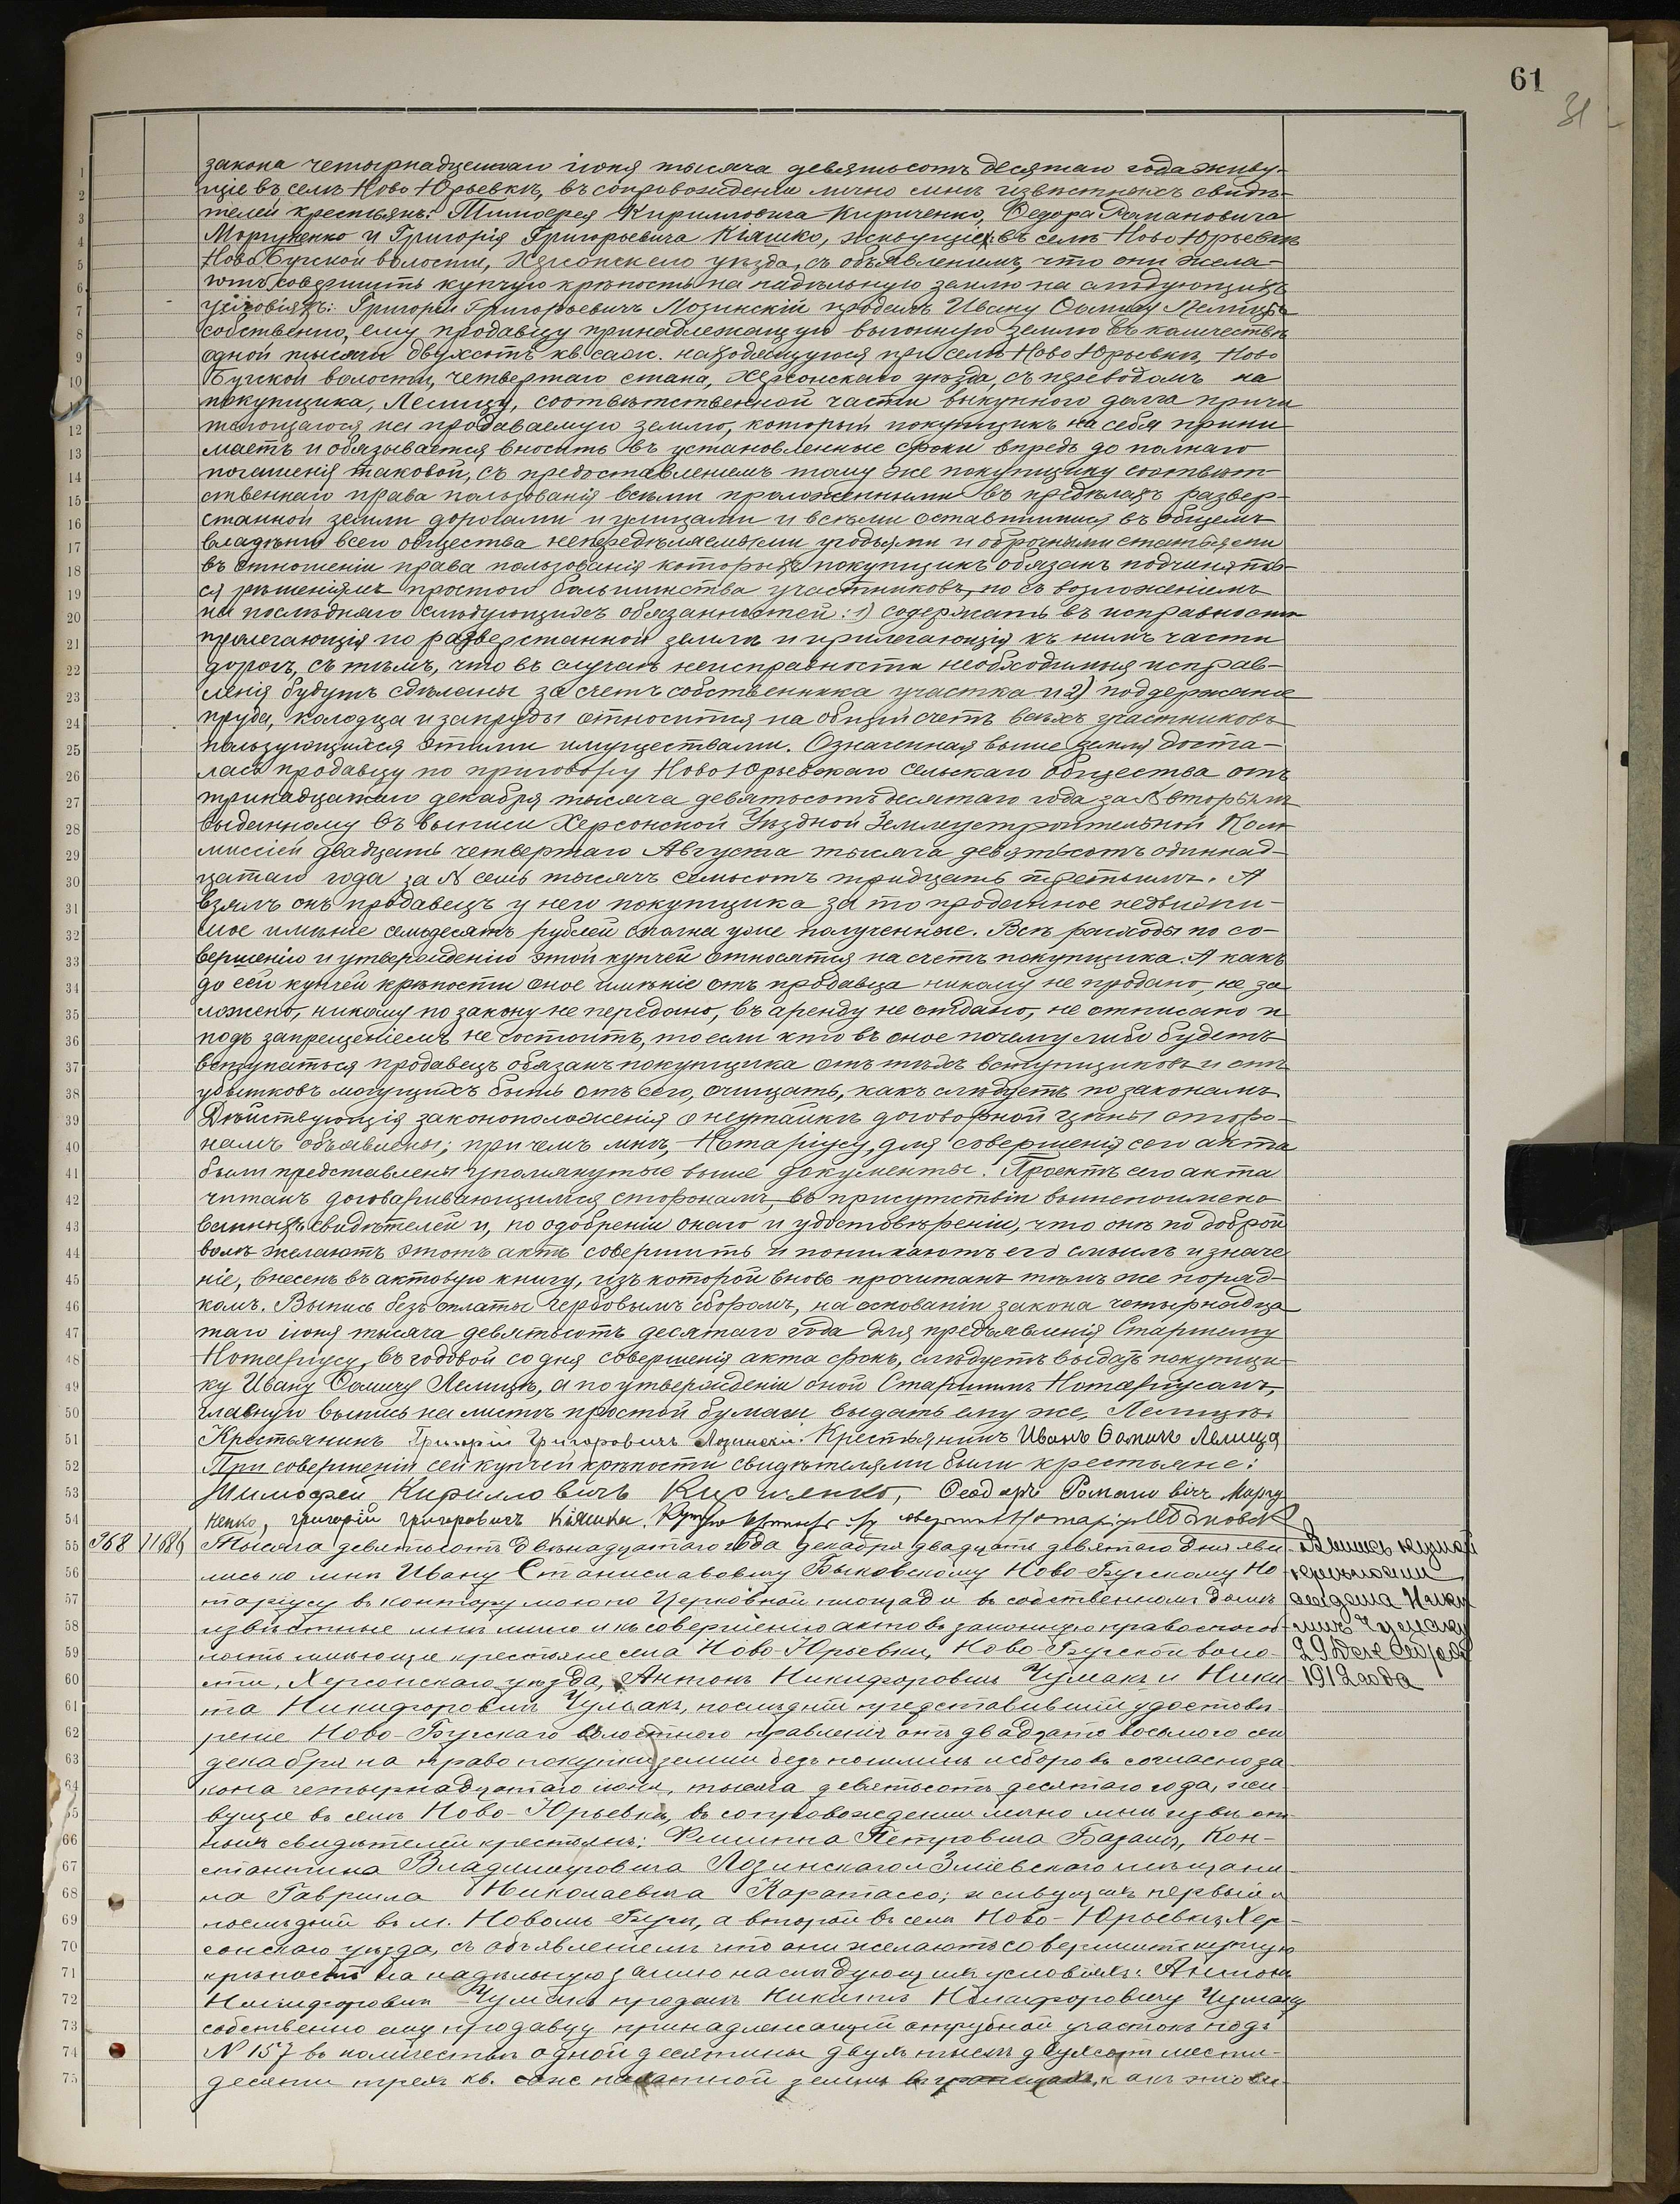 61
31
закона четырнадцатаго іюня тысяча девятьсотъ десятаго года живу-
щіе въ селѣ Ново Юрьевкѣ, въ сопровожденіи лично мнѣ извѣстныхъ свидѣ-
телей крестьянъ: Тимоѳея Кирилловича Кириченко, Ѳедора Романовича
Моргуненко и Григорія Григорьевича Кіяшко, живущихъ въ селѣ Ново Юрьевкѣ
Ново Бугской волости, Херсонскаго уѣзда, съ объявленіемъ, что они жела-
ютъ совершить купчую крѣпость на надѣльную землю на слѣдующихъ
условіяхъ: Григорій Григорьевичъ Лозинскій продалъ Ивану Ѳомичу Лемищѣ
собственно, ему продавцу принадлежащую выгонную землю въ количествѣ
одной тысячи двухсотъ кв. саж. находящуюся при селѣ Ново Юрьевкѣ, Ново
Бугской волости, четвертаго стана, Херсонскаго уѣзда, съ переводомъ на
покупщика, Лемищу, соотвѣтственной части выкупного долга причи
тающагося на продаваемую землю, который покупщикъ на себя прини
маетъ и обязывается вносить въ установленные сроки впредь до полнаго
погашенія таковой, съ предоставленіемъ тому же покупщику соотвѣт-
ственнаго права пользованія всѣми проложенными въ предѣлахъ развер-
станной земли дорогами и улицами и всѣми оставшимися въ общемъ
владѣніи всего общества непередѣляемыми угодьями и оброчными статьями
въ отношеніи права пользованія которыхъ покупщикъ обязанъ подчинять-
ся рѣшеніямъ простого большинства участниковъ, но съ возложеніемъ
на послѣдняго слѣдующихъ обязанностей: 1) содержать въ исправности
пролегающія по разверстанной землѣ и прилегающія къ нимъ части
дорогъ, съ тѣмъ, что въ случаѣ неисправности необходимыя исправ-
ленія будутъ сдѣланы за счетъ собственника участка и 2) поддержаніе
пруда, колодца и запруды относится на общій счетъ всѣхъ участниковъ
пользующихся этими имуществами. Означенная выше земля доста-
лась продавцу по приговору Ново Юрьевскаго сельскаго общества отъ
тринадцатаго декабря тысяча девятьсотъ десятаго года за № вторымъ
выданному въ выписи Херсонской Уѣздной Землеустроительной Ком
миссіей двадцать четвертаго Августа тысяча девятьсотъ одиннад-
цатаго года за № семь тысячъ семьсотъ тридцать третьимъ. А
взялъ онъ продавецъ у него покупщика за то проданное недвижи-
мое имѣніе семьдесятъ рублей сполна уже полученные. Всѣ расходы по со-
вершенію и утвержденію этой купчей относятся на счетъ покупщика. А какъ
до сей купчей крѣпости оное имѣніе отъ продавца никому не продано, не за
ложено, никому по закону не передано, въ аренду не отдано, не отписано и
подъ запрещеніемъ не состоитъ, то если кто въ оное почему либо будетъ
вступаться продавецъ обязанъ покупщика отъ тѣхъ вступщиковъ и отъ
убытковъ могущихъ быть отъ сего, очищать, какъ слѣдуетъ по законамъ.
Дѣйствующія законоположенія о неутайкѣ договорной цѣны сторо-
намъ объявлены; причемъ мнѣ, Нотаріусу, для совершенія сего акта
были представлены упомянутые выше документы. Проектъ сего акта
читанъ договаривающимся сторонамъ, въ присутствіи вышепоимено
ванныхъ свидѣтелей и, по одобреніи онаго и удостовѣреніи, что онѣ по доброй
волѣ желаютъ этотъ актъ совершить и понимаютъ его смыслъ и значе
ніе, внесенъ въ актовую книгу, изъ которой вновь прочитанъ тѣмъ же поряд-
комъ. Выпись безъ оплаты гербовымъ сборомъ, на основаніи закона четырнадца
таго іюня тысяча девятьсотъ десятаго года для предъявленія Старшему
Нотаріусу, въ годовой со дня совершенія акта срокъ, слѣдуетъ выдать покупщи-
ку Ивану Ѳомичу Лемищѣ, а по утвержденіи оной Старшимъ Нотаріусомъ,
главную выпись на листѣ простой бумаги выдать ему же, Лемищѣ.
Крестьянинъ Григорій Григоровичъ Лозинскій. Крестьянинъ Иванъ Ѳомичъ Лемища
При совершеніи сей купчей крѣпости свидѣтелями были крестьяне:
Тимофей Кирилловичъ Кириченко, Ѳеодоръ Романовичъ Моргу
ненко, Григорій Григоровичъ Кіяшко. Нотаріусъ Быковскій
368 11686 Тысяча девятьсотъ двѣнадцатаго года декабря двадцать девятаго дня яви- Выпись купчей
лись ко мнѣ Ивану Станиславовичу Быковскому Ново-Бугскому Но- крѣпости
таріусу въ контору мою на Церковной площади въ собственномъ домѣ выдана Ники
извѣстные мнѣ лично и къ совершенію актовъ законную правоспособ- тѣ Чумаку
ность имѣющіе крестьяне села Ново-Юрьевки, Ново-Бугской воло- 29 декабря
сти, Херсонскаго уѣзда, Антонъ Никифоровичъ Чумакъ и Ники- 1912 года
та Никифоровичъ Чумакъ, послѣдній представившій удостовѣ-
реніе Ново-Бугскаго волостного правленія отъ двадцать восьмого сего
декабря на право покупки земли безъ пошлинъ и сборовъ согласно за
кона четырнадцатаго іюня, тысяча девятьсотъ десятаго года, жи-
вущіе въ селѣ Ново-Юрьевкѣ, въ сопровожденіи лично мнѣ извѣст-
ныхъ свидѣтелей крестьянъ: Филиппа Петровича Базана, Кон-
стантина Владимировича Лозинскаго и Зміевскаго мѣщани-
на Гавріила Николаевича Каратассо; живущихъ первый и
послѣдній въ м. Новомъ-Бугѣ, а второй въ селѣ Ново-Юрьевкѣ, Хер-
сонскаго уѣзда, съ объявленіемъ что они желаютъ совершить купчую
крѣпость на надѣльную землю на слѣдующихъ условіяхъ: Антонъ
Никифоровичъ Чумакъ продалъ Никитѣ Никифоровичу Чумаку
собственно ему продавцу принадлежащій отрубной участокъ подъ
№ 157 въ количествѣ одной десятины двухъ тысячъ двухсотъ шести-
десяти трехъ кв. саж. пахатной земли